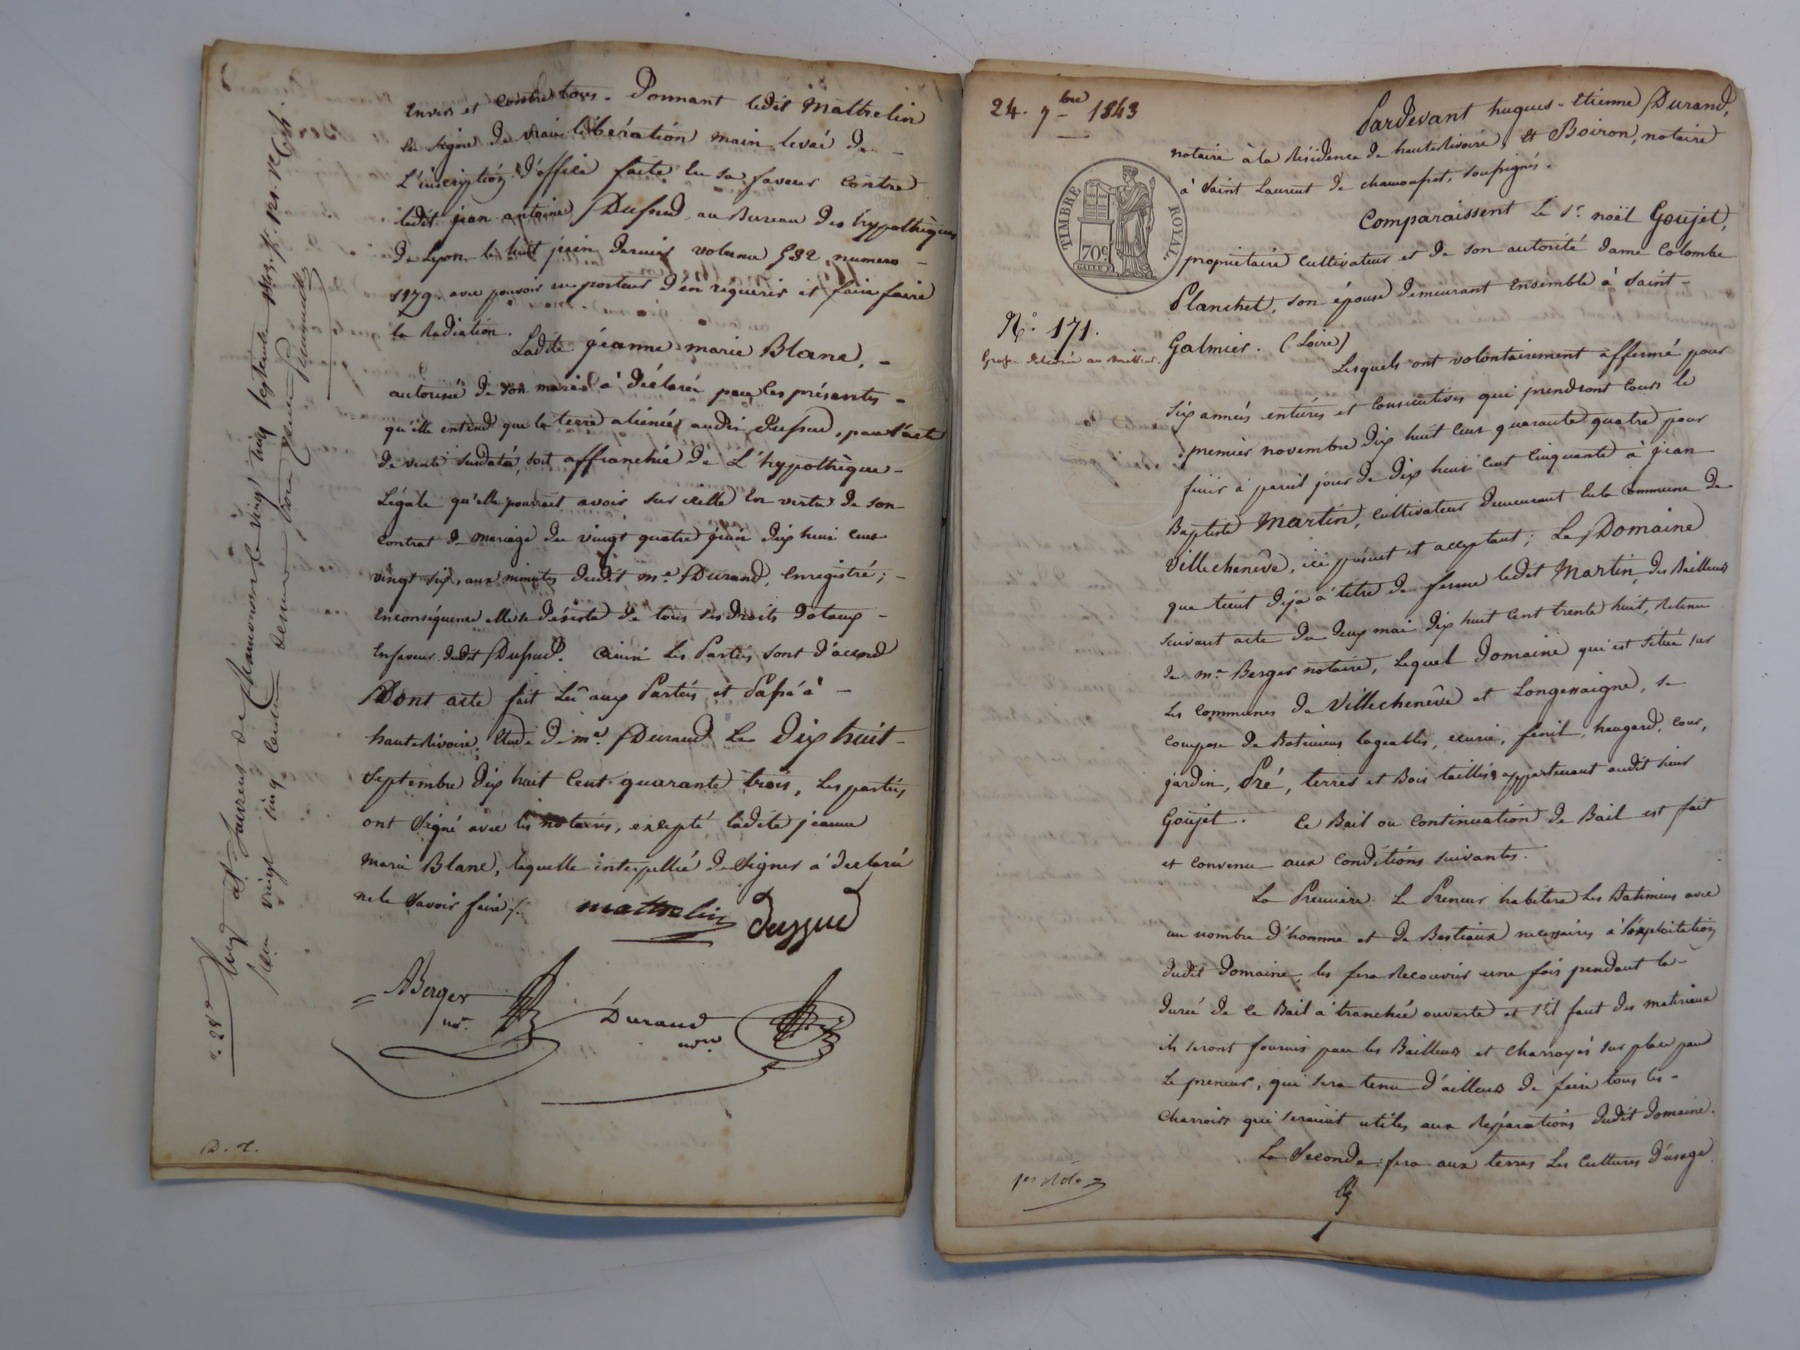 envers et contre tous. Donnant ledit Mathelin
en signe de vraie libération main levée de
L'inscription d'office faite en sa faveur contre
ledit jean antoine Dussud au Bureau des hypothèques
de Lyon le huit juin dernier volume 582, numero
1179. avec pouvoir au porteur d'en requerir et faire faire
la Radiation.
Ladite jéanne marie Blanc,
autorisée de son mari à déclaré par les présentes
qu'elle entend que la terre alienée audit Dussud, par l'acte
de vente susdaté, soit affranchie de L'hypothèque
Légale qu'elle pourrait avoir sur icelle en vertu de son
contrat de mariage du vingt quatre juin dix huit cent
vingt six, aux minutes dudit me. Durand, enregistré;
enconséquence elle se désiste de tous ses droits dotaux
en faveur dudit Dussud. Ainsi Les Parties sont d'accord
Dont acte fait Lû aux Parties et Passé à
hauterivoire Etude de me. Durand Le dix huit
septembre dix huit cent quarante trois, Les parties
ont signé avec les notaires, excepté ladite jeanne
marie Blanc, laquelle interpellée de signer à declaré
ne le savoir faire /.
mathelin Dussud
ABerger
nre.
Durand
nre
24. 7bre 1843
Pardevant hugues-etienne Durand,
notaire à la Résidence de hauterivoire, et Boiron, notaire
à Saint Laurent de chamousset, soussignés.
TIMBRE ROYAL
70c
Comparaissent Le Sr. noël Goujet,
propriétaire cultivateur et de son autorité dame Colombe
Planchet, son épouse demeurant ensemble à Saint-
No. 171.
Galmier. (Loire)
Grosse delivrée au
Lesquels ont volontairement affermé pour
six années entières et consecutives qui prendront cours le
premier novembre dix huit cent quarante quatre pour
finir à pareil jour de dix huit cent cinquante à jean
Baptiste Martin, cultivateur demeurant en la commune de
Villechenêve, ici présent et acceptant; Le Domaine
que tient déjà à titre de ferme ledit Martin, des Bailleurs
suivant acte du deux mai dix huit cent trente huit, Retenu
de me Berger notaire, Lequel domaine qui est situé sur
Les communes de Villechenêve et Longessaigne, se
compose de Batimens logeables, écurie, fenil, hangard, cour,
jardin, Pré, terres et Bois taillis appartenant audit sieur
Goujet. Ce Bail ou continuation de Bail est fait
et convenu aux conditions suivantes.
La Premiere. Le Preneur habitera Les Batimens avec
un nombre d'homme et de Bestiaux necessaires à l'exploitation
dudit domaine, les fera Recouvrir une fois pendant la
durée de ce Bail à tranchée ouverte et s'il faut des materiaux
ils seront fournis par les Bailleurs et charroyés sur place par
Le preneur, qui sera tenu d'ailleurs de faire tous les
charrois qui seraient utiles aux Réparations dudit domaine.
La Seconde. fera aux terres Les cultures d'usage